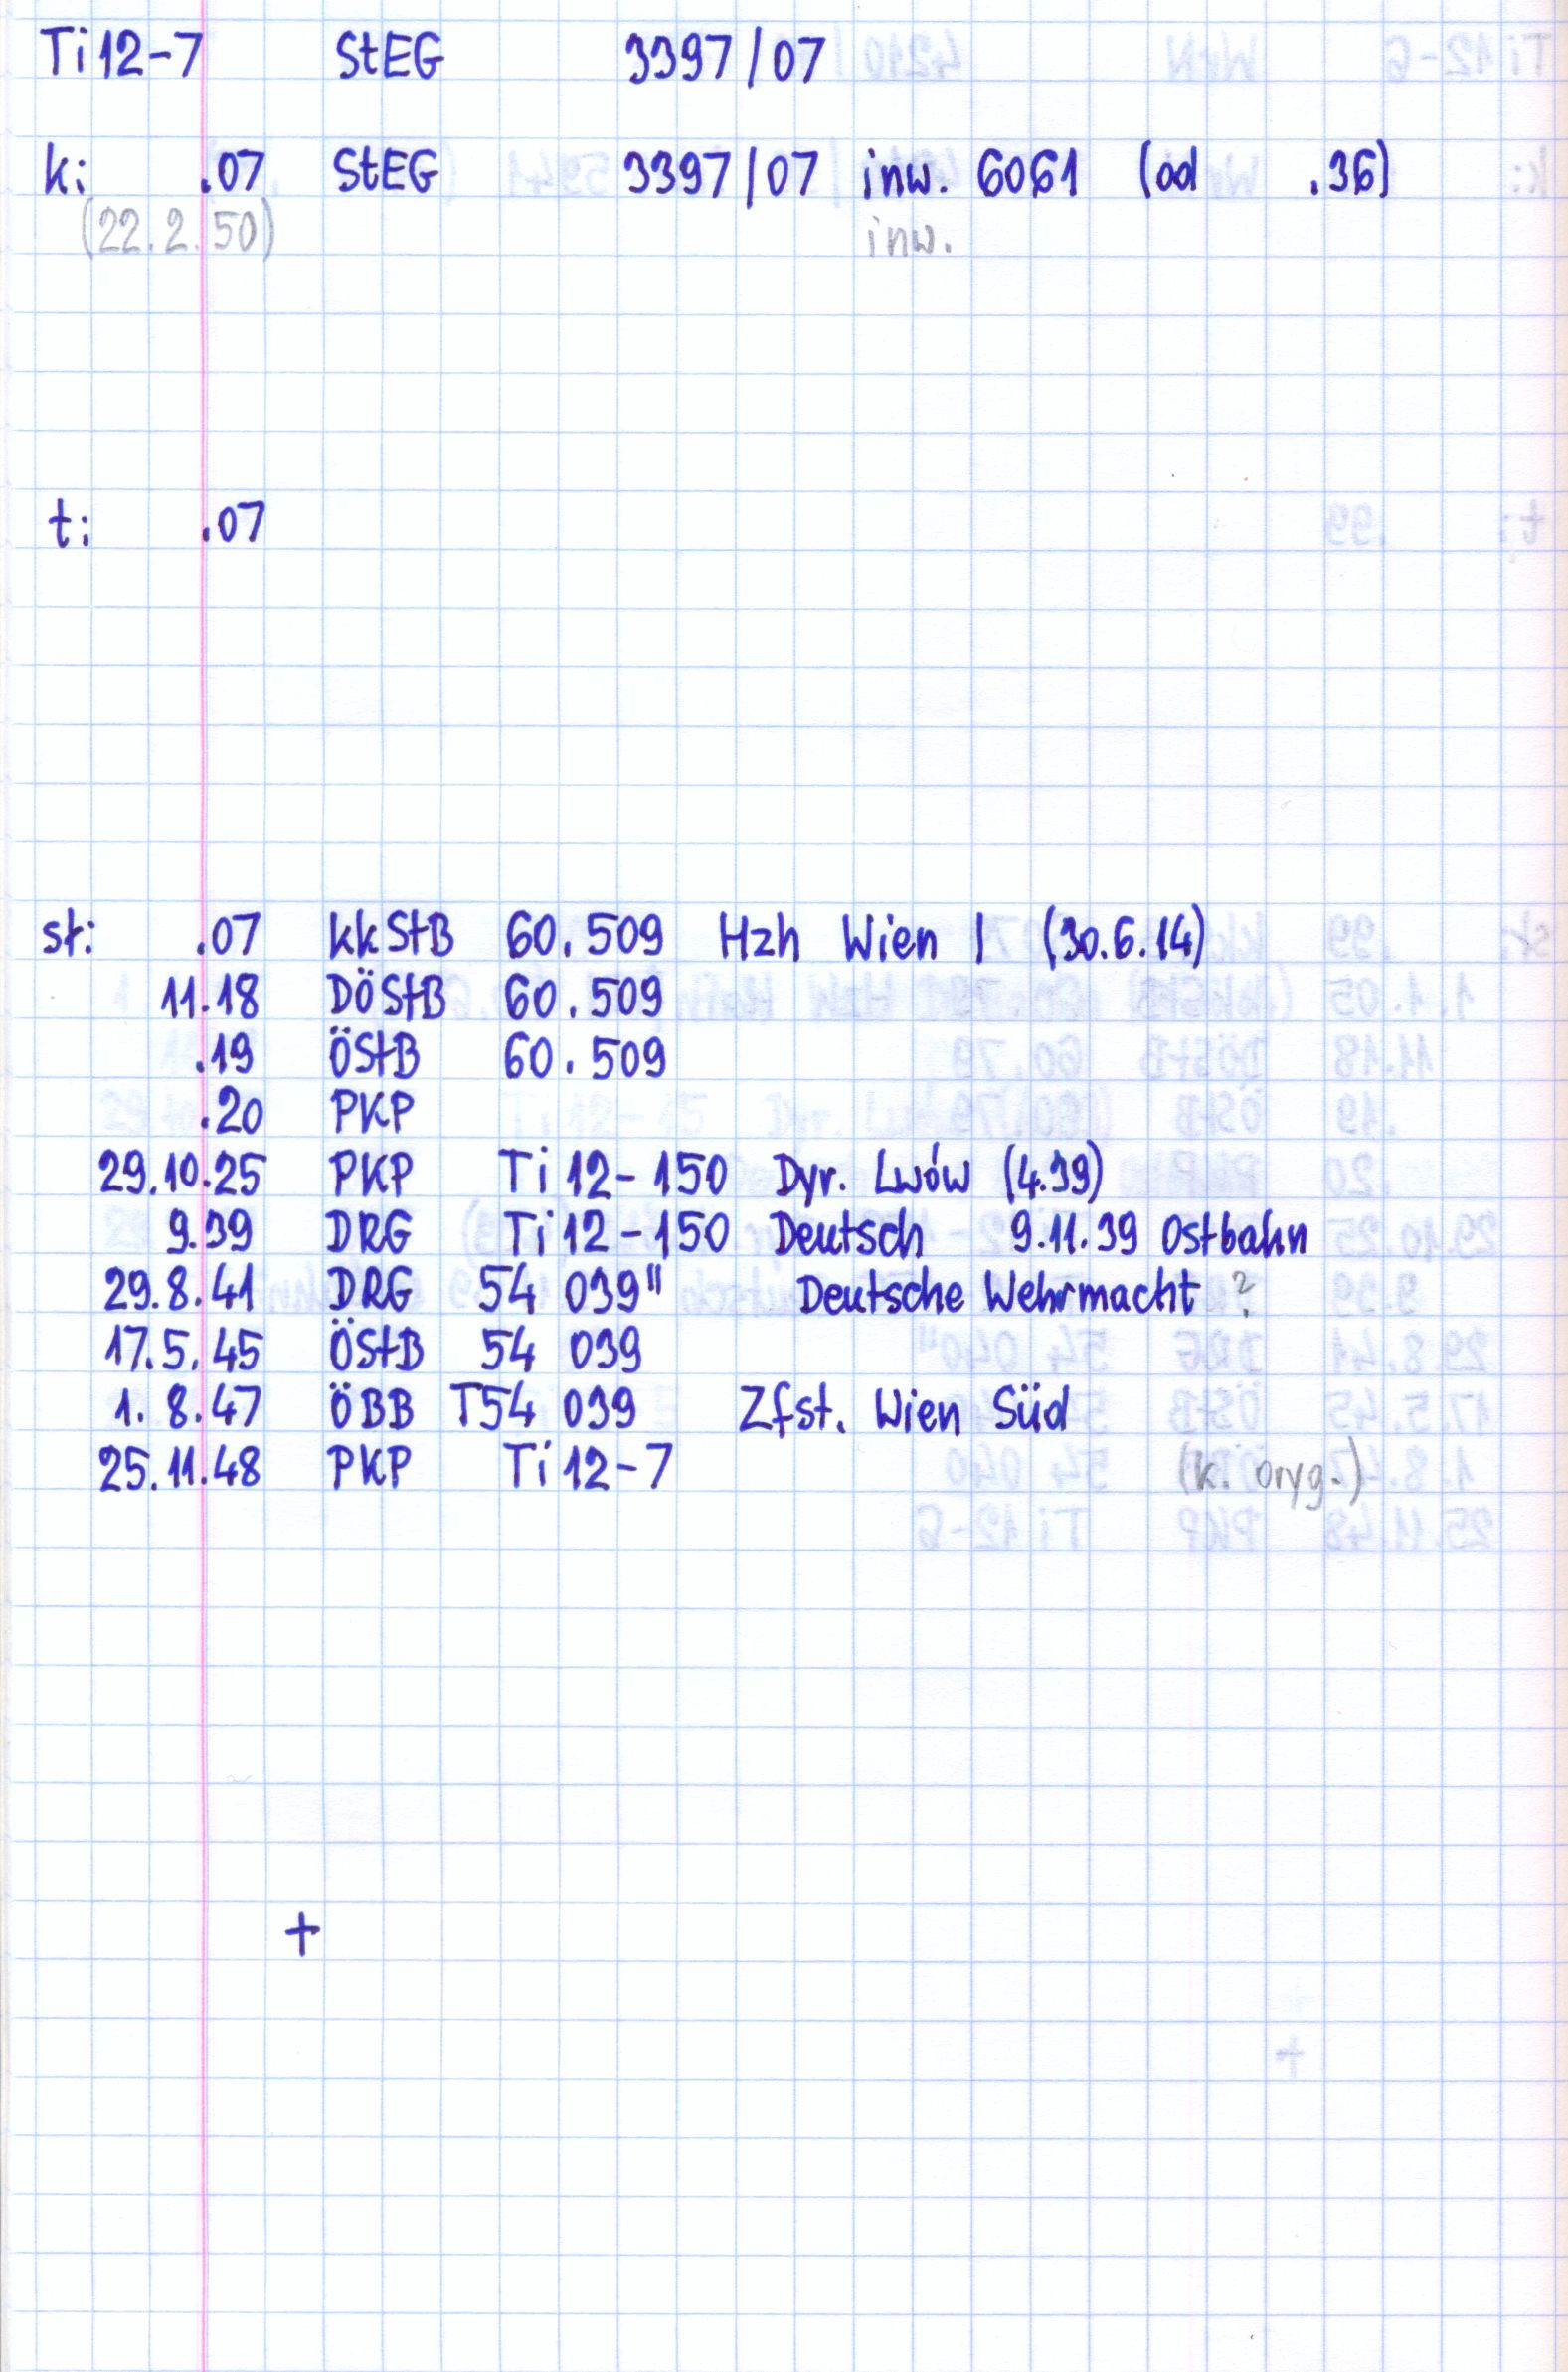 Ti 12-7 StEG 3397/07
k: .07 StEG 3397/07 inw. 6061 (od .36)
(22.2.50) inw.
t: .07
sł: .07 kkStB 60.509 Hzh Wien I (30.6.14)
11.18 DÖStB 60.509
.19 ÖStB 60.509
.20 PKP
29.10.25 PKP Ti 12-150 Dyr. Lwów (4.39)
9.39 DRG Ti 12-150 Deutsch 9.11.39 Ostbahn
29.8.41 DRG 54 039" Deutsche Wehrmacht ?
17.5.45 ÖStB 54 039
1.8.47 ÖBB T54 039 Zfst. Wien Süd
25.11.48 PKP Ti 12-7 (k. oryg.)
+